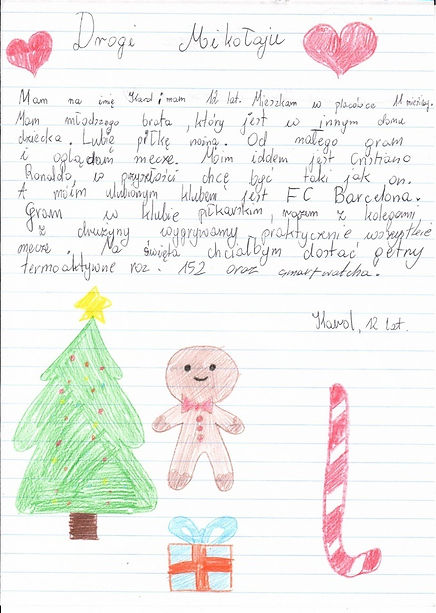 Drogi Mikołaju
Mam na imię Karol i mam 12 lat. Mieszkam w placówce 11 miesięcy.
Mam młodszego brata, który jest w innym domu
dziecka. Lubię piłkę nożną. Od małego gram
i oglądam mecze. Moim idolem jest Cristiano
Ronaldo, w przyszłości chcę być taki jak on.
A moim ulubionym klubem jest FC Barcelona.
Gram w klubie piłkarskim, razem z kolegami
z drużyny wygrywamy praktycznie wszystkie
mecze. Na święta chciałbym dostać getry
termoaktywne roz. 152 oraz smartwatcha.
Karol, 12 lat.